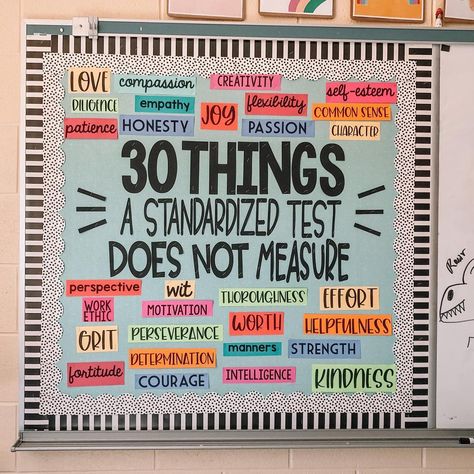 LOVE
compassion
CREATIVITY
self-esteem
DILIGENCE
empathy
JOY
flexibility
COMMON SENSE
patience
HONESTY
PASSION
CHARACTER
30 THINGS
A STANDARDIZED TEST
DOES NOT MEASURE
perspective
wit
THOROUGHNESS
EFFORT
WORK
ETHIC
MOTIVATION
GRIT
PERSEVERANCE
WORTH
HELPFULNESS
DETERMINATION
manners
STRENGTH
fortitude
COURAGE
INTELLIGENCE
KINDNESS